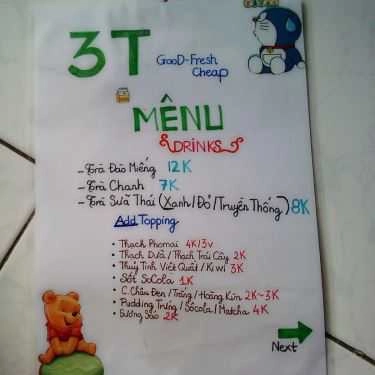 3T
GooD-Fresh
Cheap
MÊNU
DRINKS
- Trà Đào Miếng 12K
- Trà Chanh 7K
- Trà Sữa Thái (Xanh/Đỏ/Truyền Thống) 8K
Add Topping
• Thạch Phomai 4K/3v
• Thạch Dừa / Thạch Trái Cây 2K
• Thủy Tinh Việt Quất / Kiwi 3K
• Sốt SoCola 1K
• C. Châu Đen / Trắng / Hoàng Kim 2K~3K
• Pudding Trứng / Sôcola / Matcha 4K
• Sương Sáo 2K
Next